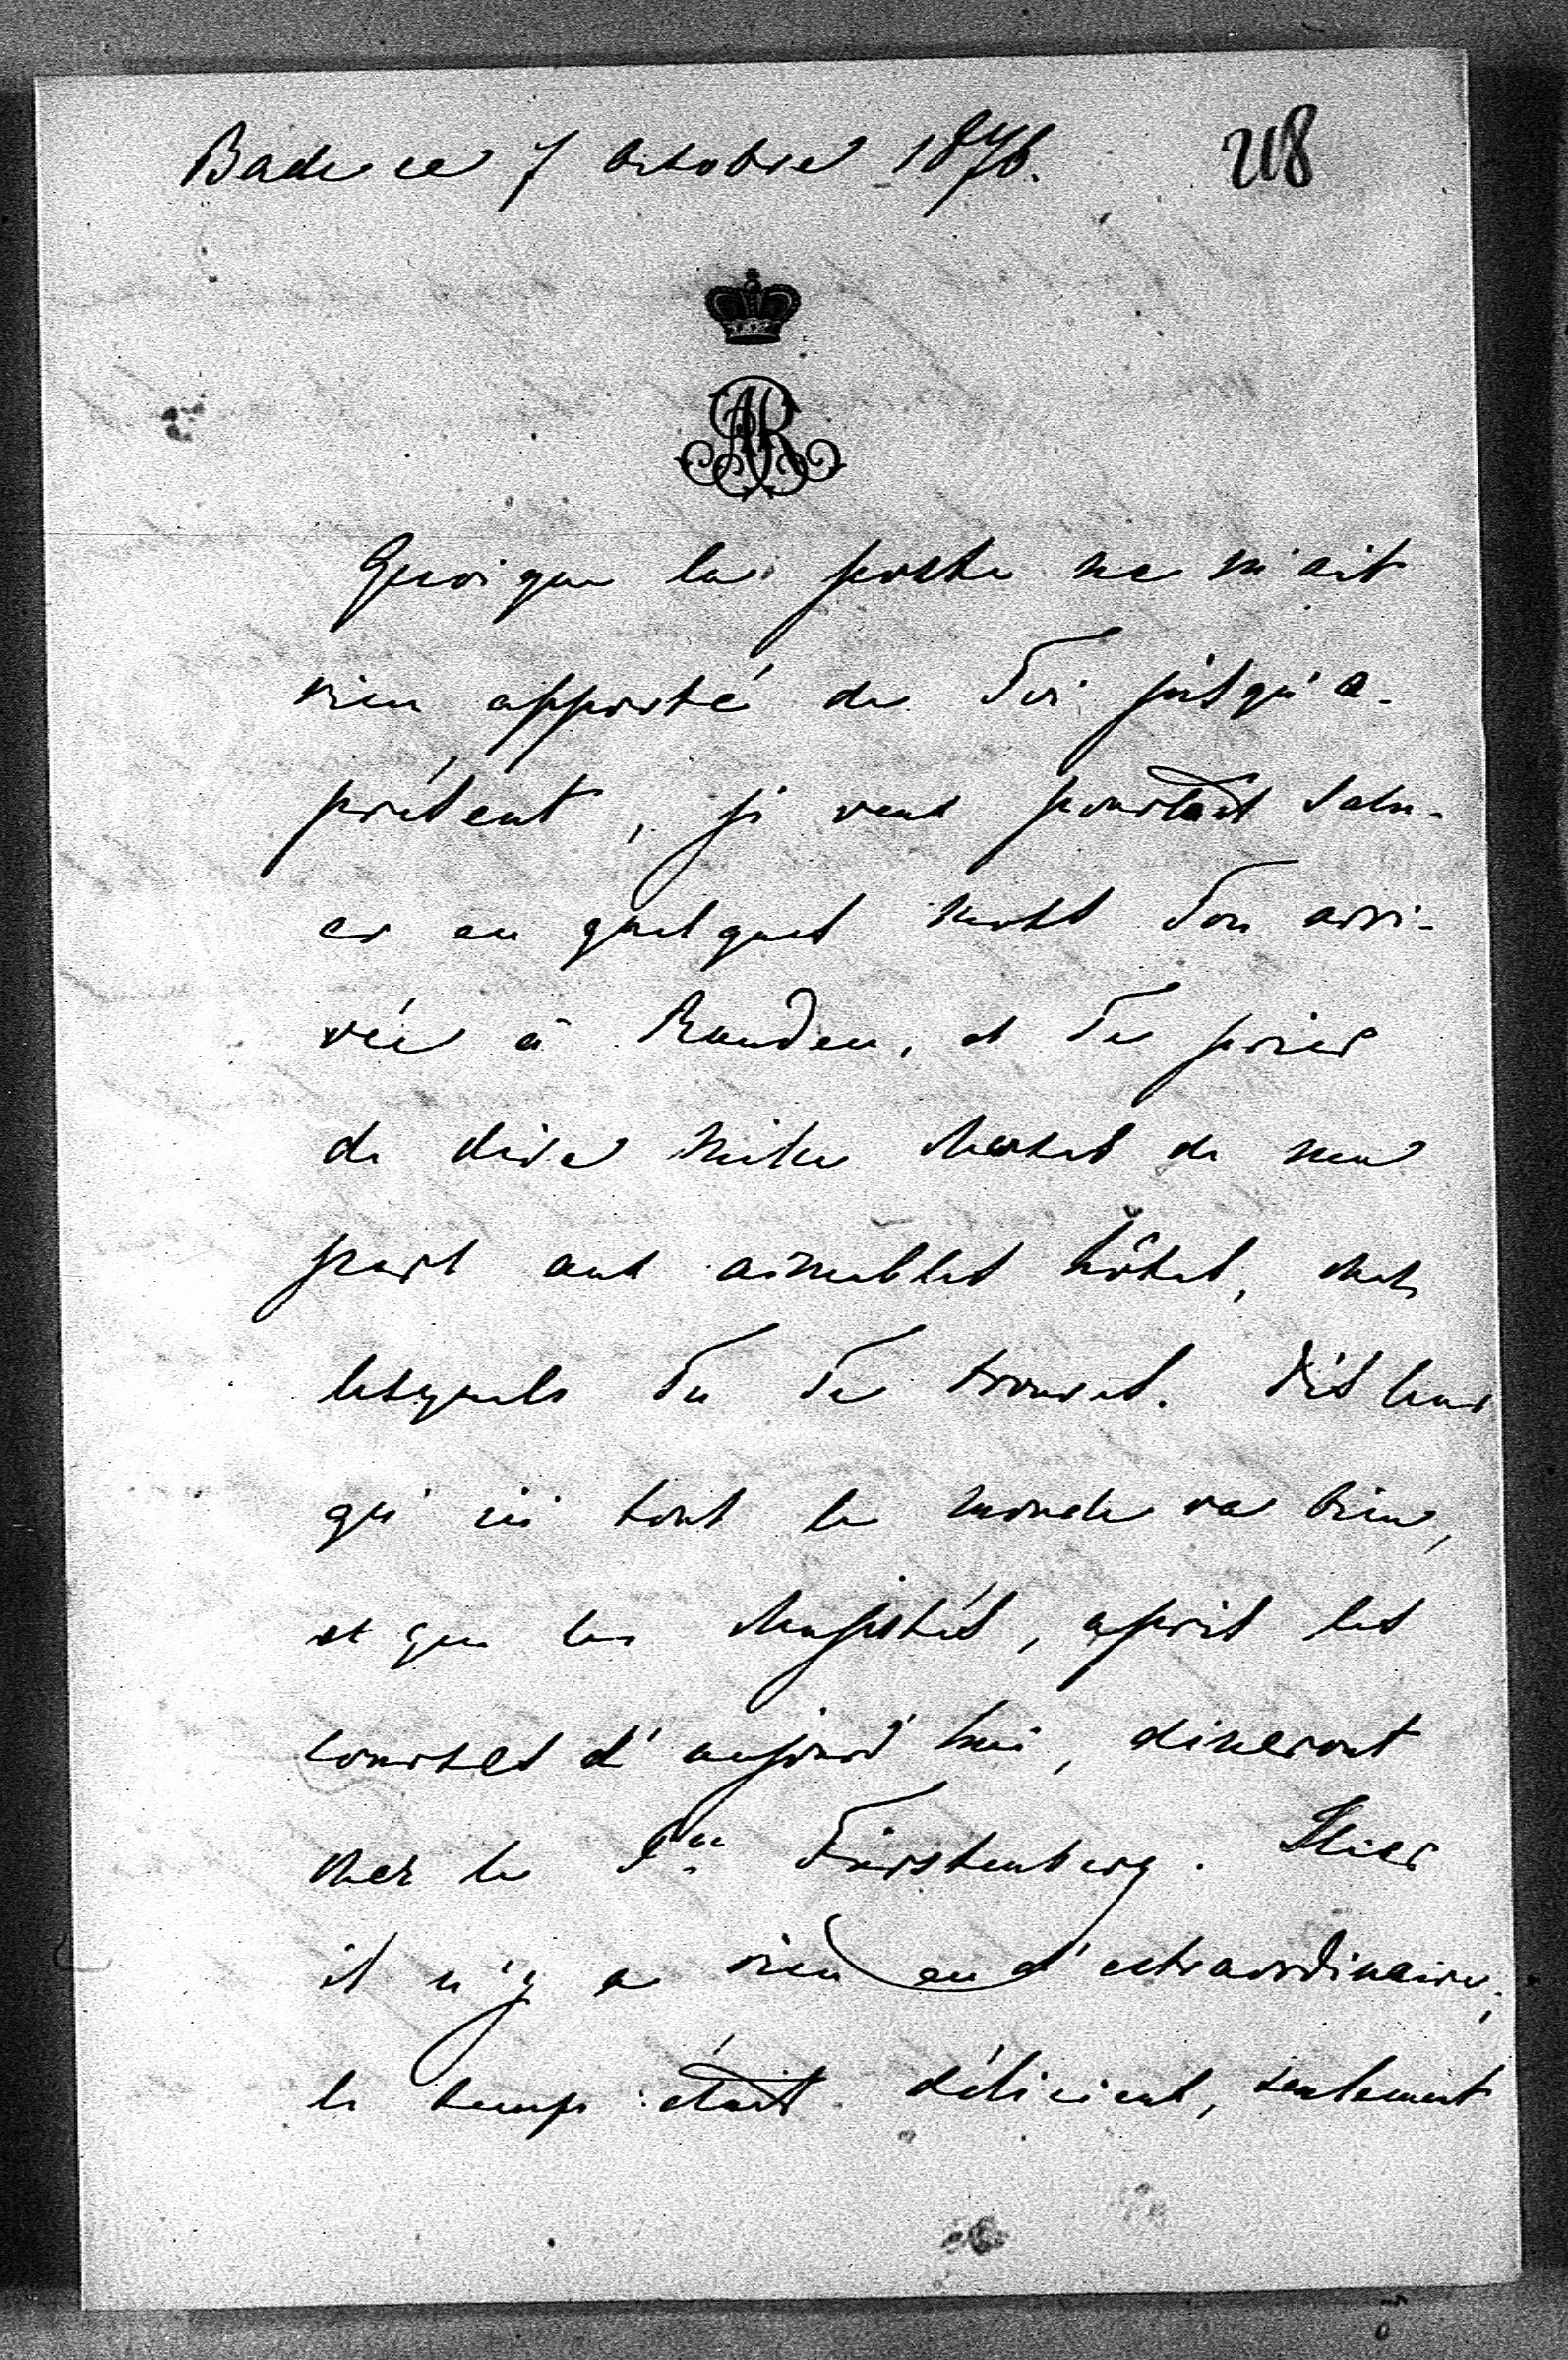 Bade ce 7 Octobre 1876. 218
AR
Quoique la poste ne m'ait
rien apporté de Toi jusqu'a-
présent, je veux pourtant salu-
er en quelques mots Ton arri-
vée à Rauden, et Te prier
de dire mille choses de ma
part aux aimables hôtes, chez
lesquels Tu Te trouves. Dis leur
qu'ici tout le monde va bien,
et que les Majestés, après les
courses d'aujourd'hui, dineront
chez le Pce Fürstenberg. Hier
il n'y a rien eu d'extraordinaire;
le temps était délicieux, seulement